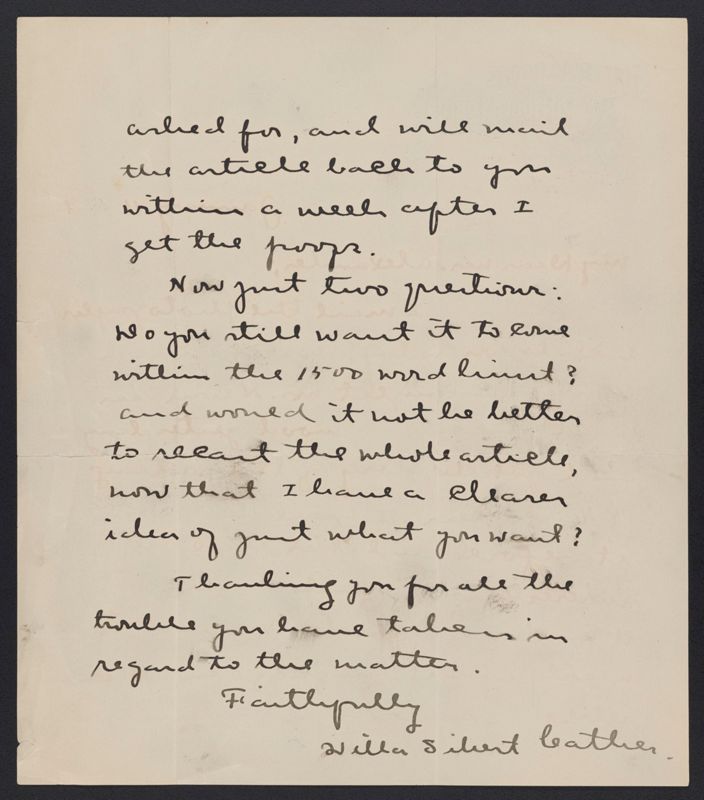 asked for, and will mail
the article back to you
within a week after I
get the proofs.
Now just two questions:
Do you still want it to come
within the 1500 word limit?
and would it not be better
to recast the whole article,
now that I have a clearer
idea of just what you want?
Thanking you for all the
trouble you have taken in
regard to the matter.
Faithfully
Willa Sibert Cather.